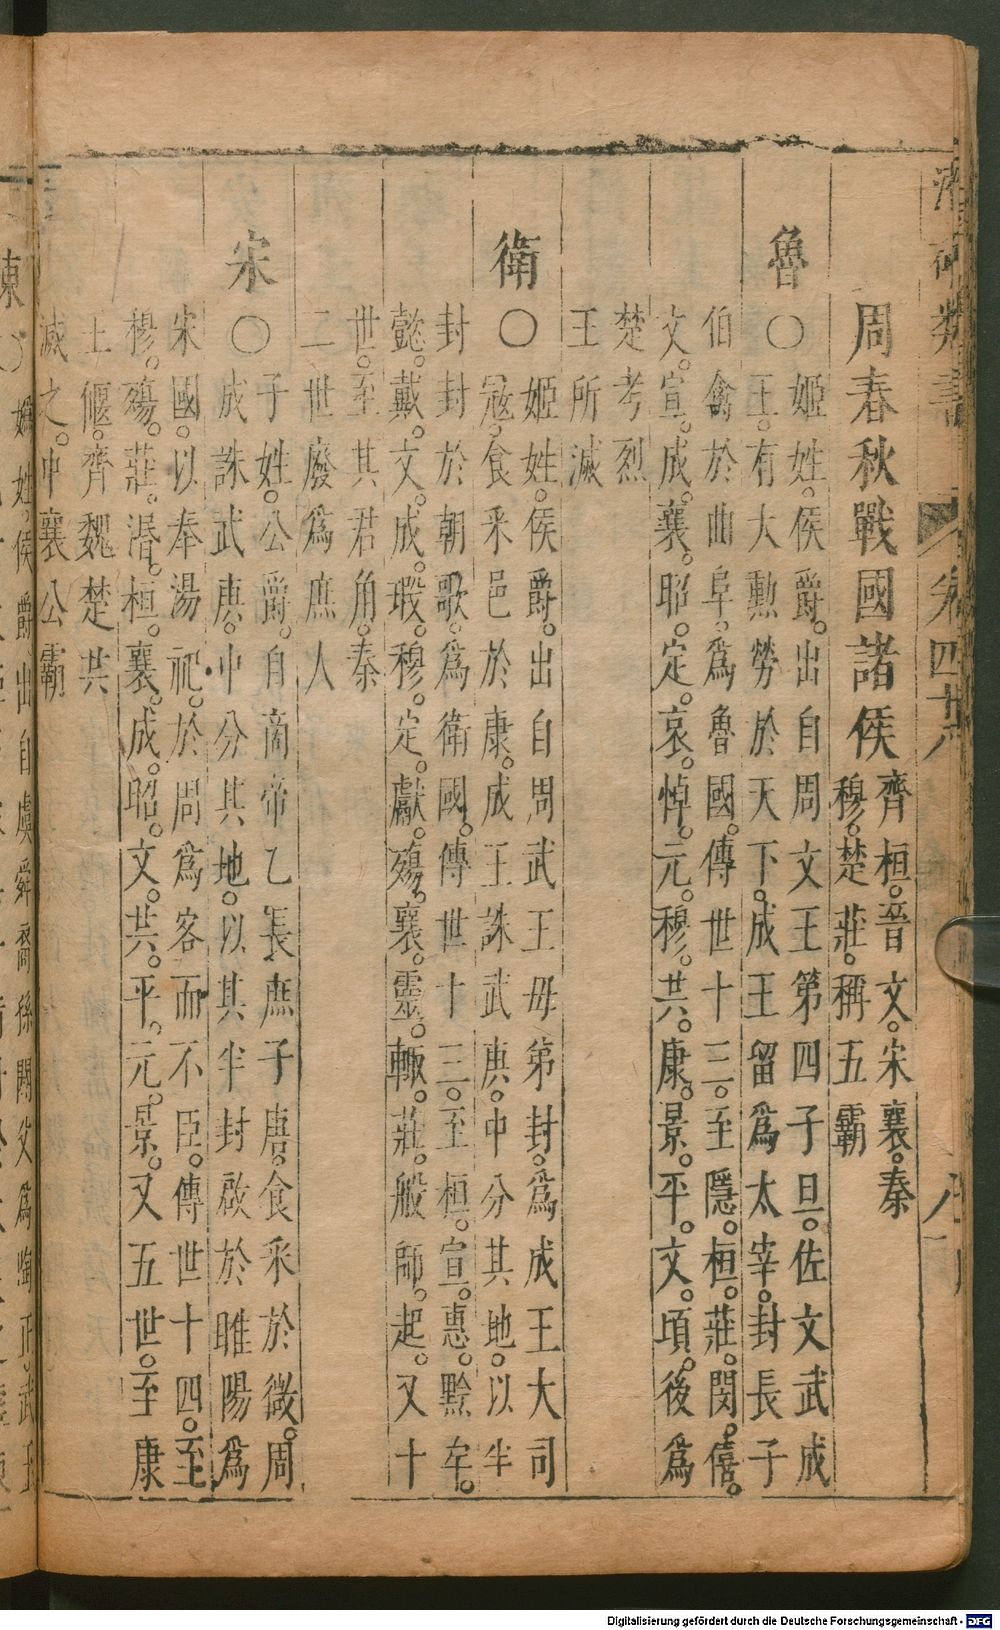 周春秋戰國諸侯
齊桓。晉文。宋襄。秦
穆。楚莊。稱五霸
魯
○姬姓。侯爵。出自周文王第四子旦。佐文武成
王。有大勳勞於天下。成王留爲太宰。封長子
伯禽於曲阜。爲魯國。傳世十三。至隱。桓。莊。閔。僖。
文。宣。成。襄。昭。定。哀。悼。元。穆。共。康。景。平。文。頃。後爲
楚考烈
王所滅
衛
○姬姓。侯爵。出自周武王毋第封。爲成王大司
冦。食采邑於康。成王誅武庚。中分其地。以半
封封於朝歌。爲衛國。傳世十三。至桓。宣。惠。黔牟。
懿。戴。文。成。瑕。穆。定。獻。殤。襄。靈。輙。莊。般師。起。又十
世。至其君角。秦
二世廢爲庶人
宋
○子姓。公爵。自商帝乙長庶子唐。食采於微。周
成誅武庚。中分其地。以其半封啟於睢陽爲
宋國。以奉湯祀。於周爲客而不臣。傳世十四。至
穆。殤。莊。湣。桓。襄。成。昭。文。共。平。元。景。又五世。至康
王偃。齊魏楚共
滅之。中襄公霸
陳
Digitalisierung gefördert durch die Deutsche Forschungsgemeinschaft - DFG